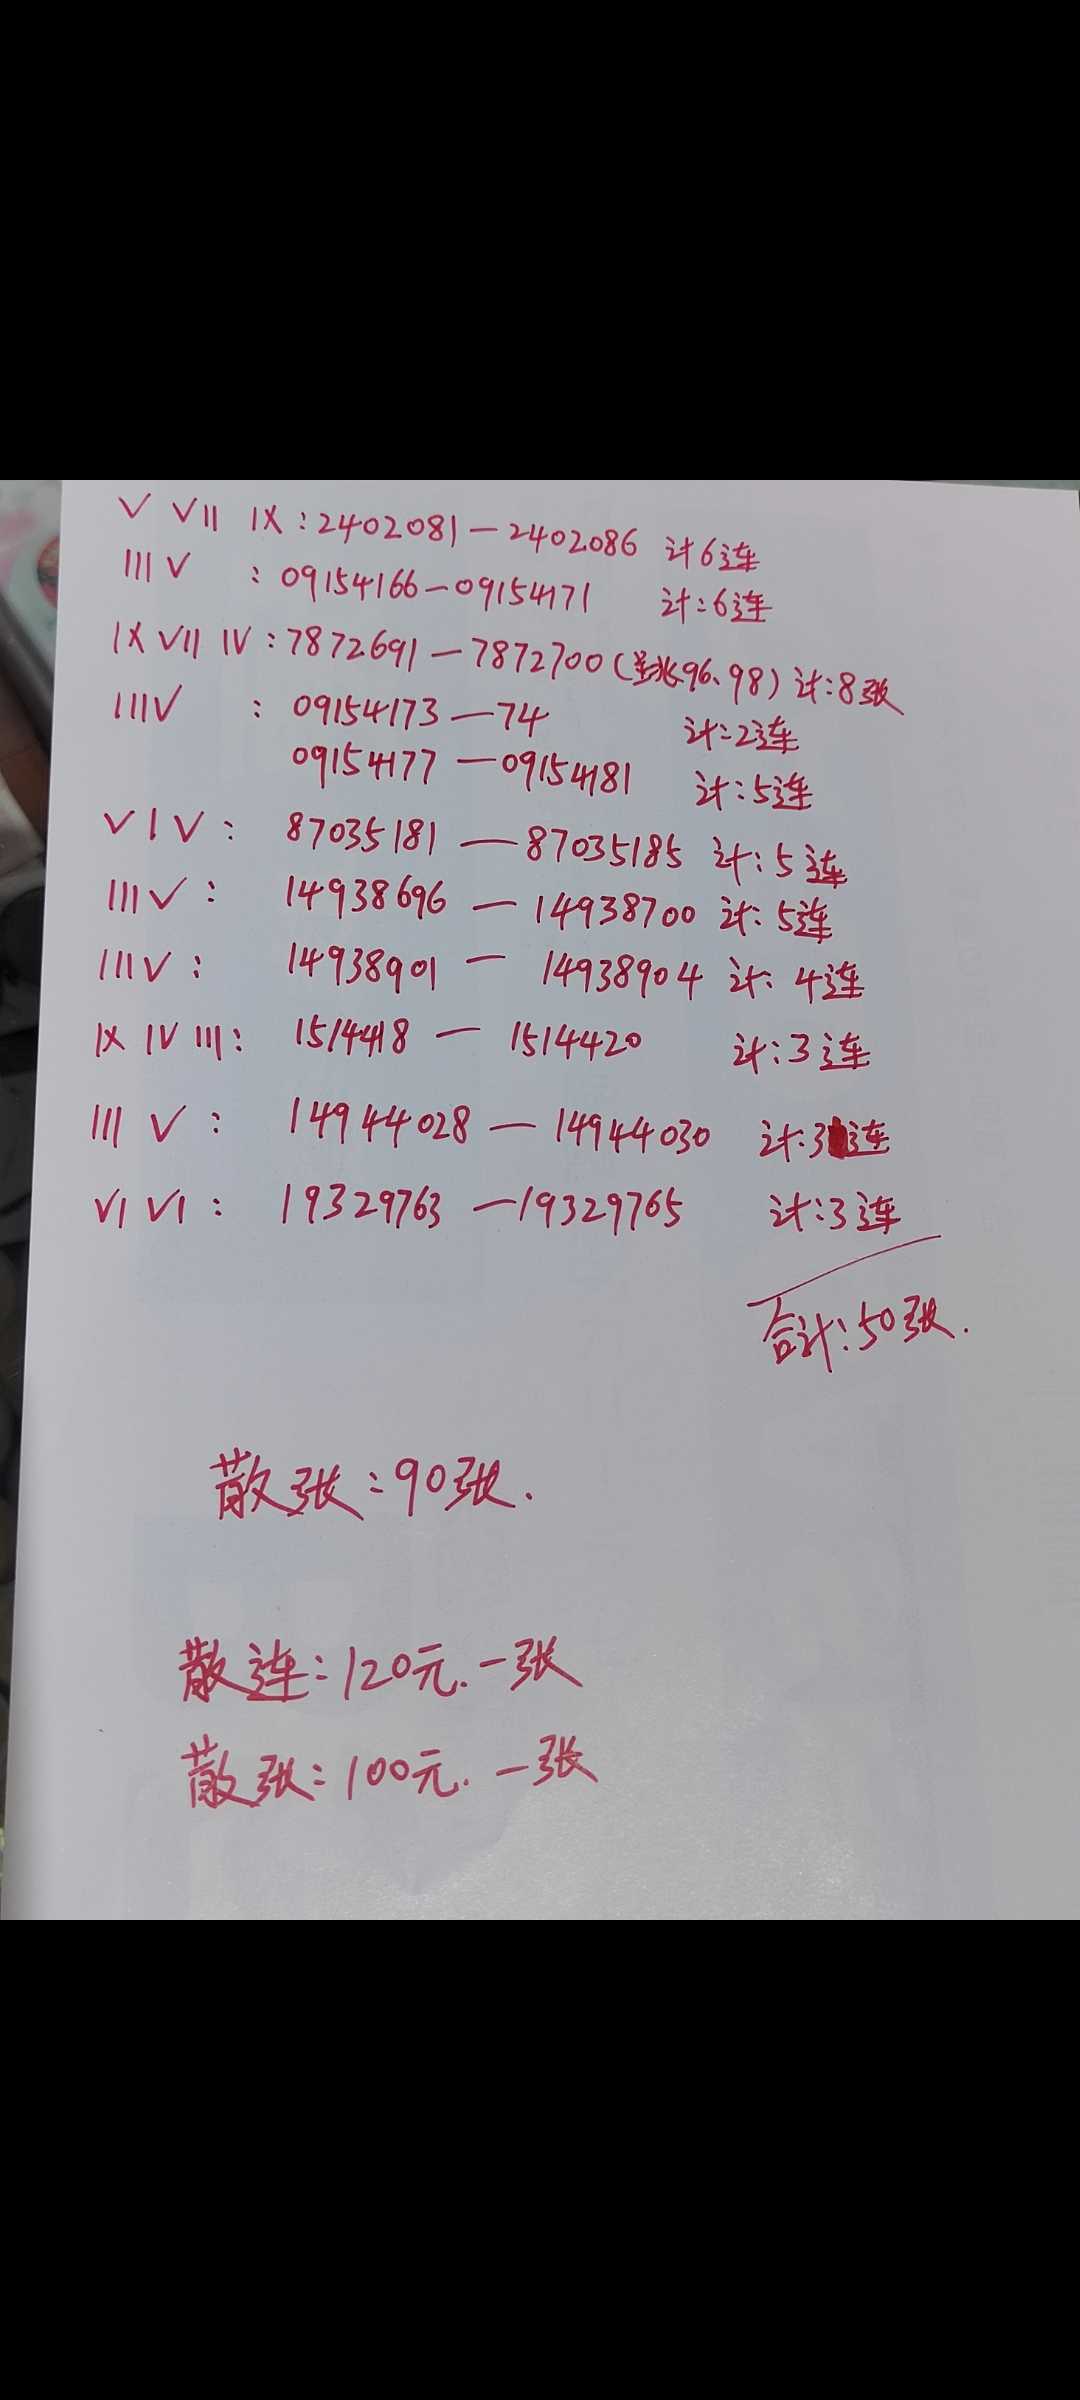 V VII IX:2402081—2402086 计6连
III V :09154166—09154171 计:6连
IX VII IV:7872691—7872700(跳96、98)计:8张
III V : 09154173—74 计:2连
09154177—09154181 计:5连
V I V: 87035181—87035185 计:5连
III V: 14938696—14938700 计:5连
III V: 14938901—14938904 计:4连
IX IV III: 1514418—1514420 计:3连
III V: 14944028—14944030 计:3连
VI VI: 19329763—19329765 计:3连
合计:50张.
散张:90张.
散连:120元.一张
散张:100元.一张